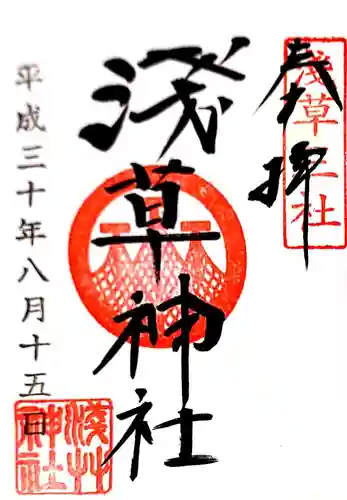 奉拝
浅草三社
淺草神社
平成三十年八月十五日
淺艸神社